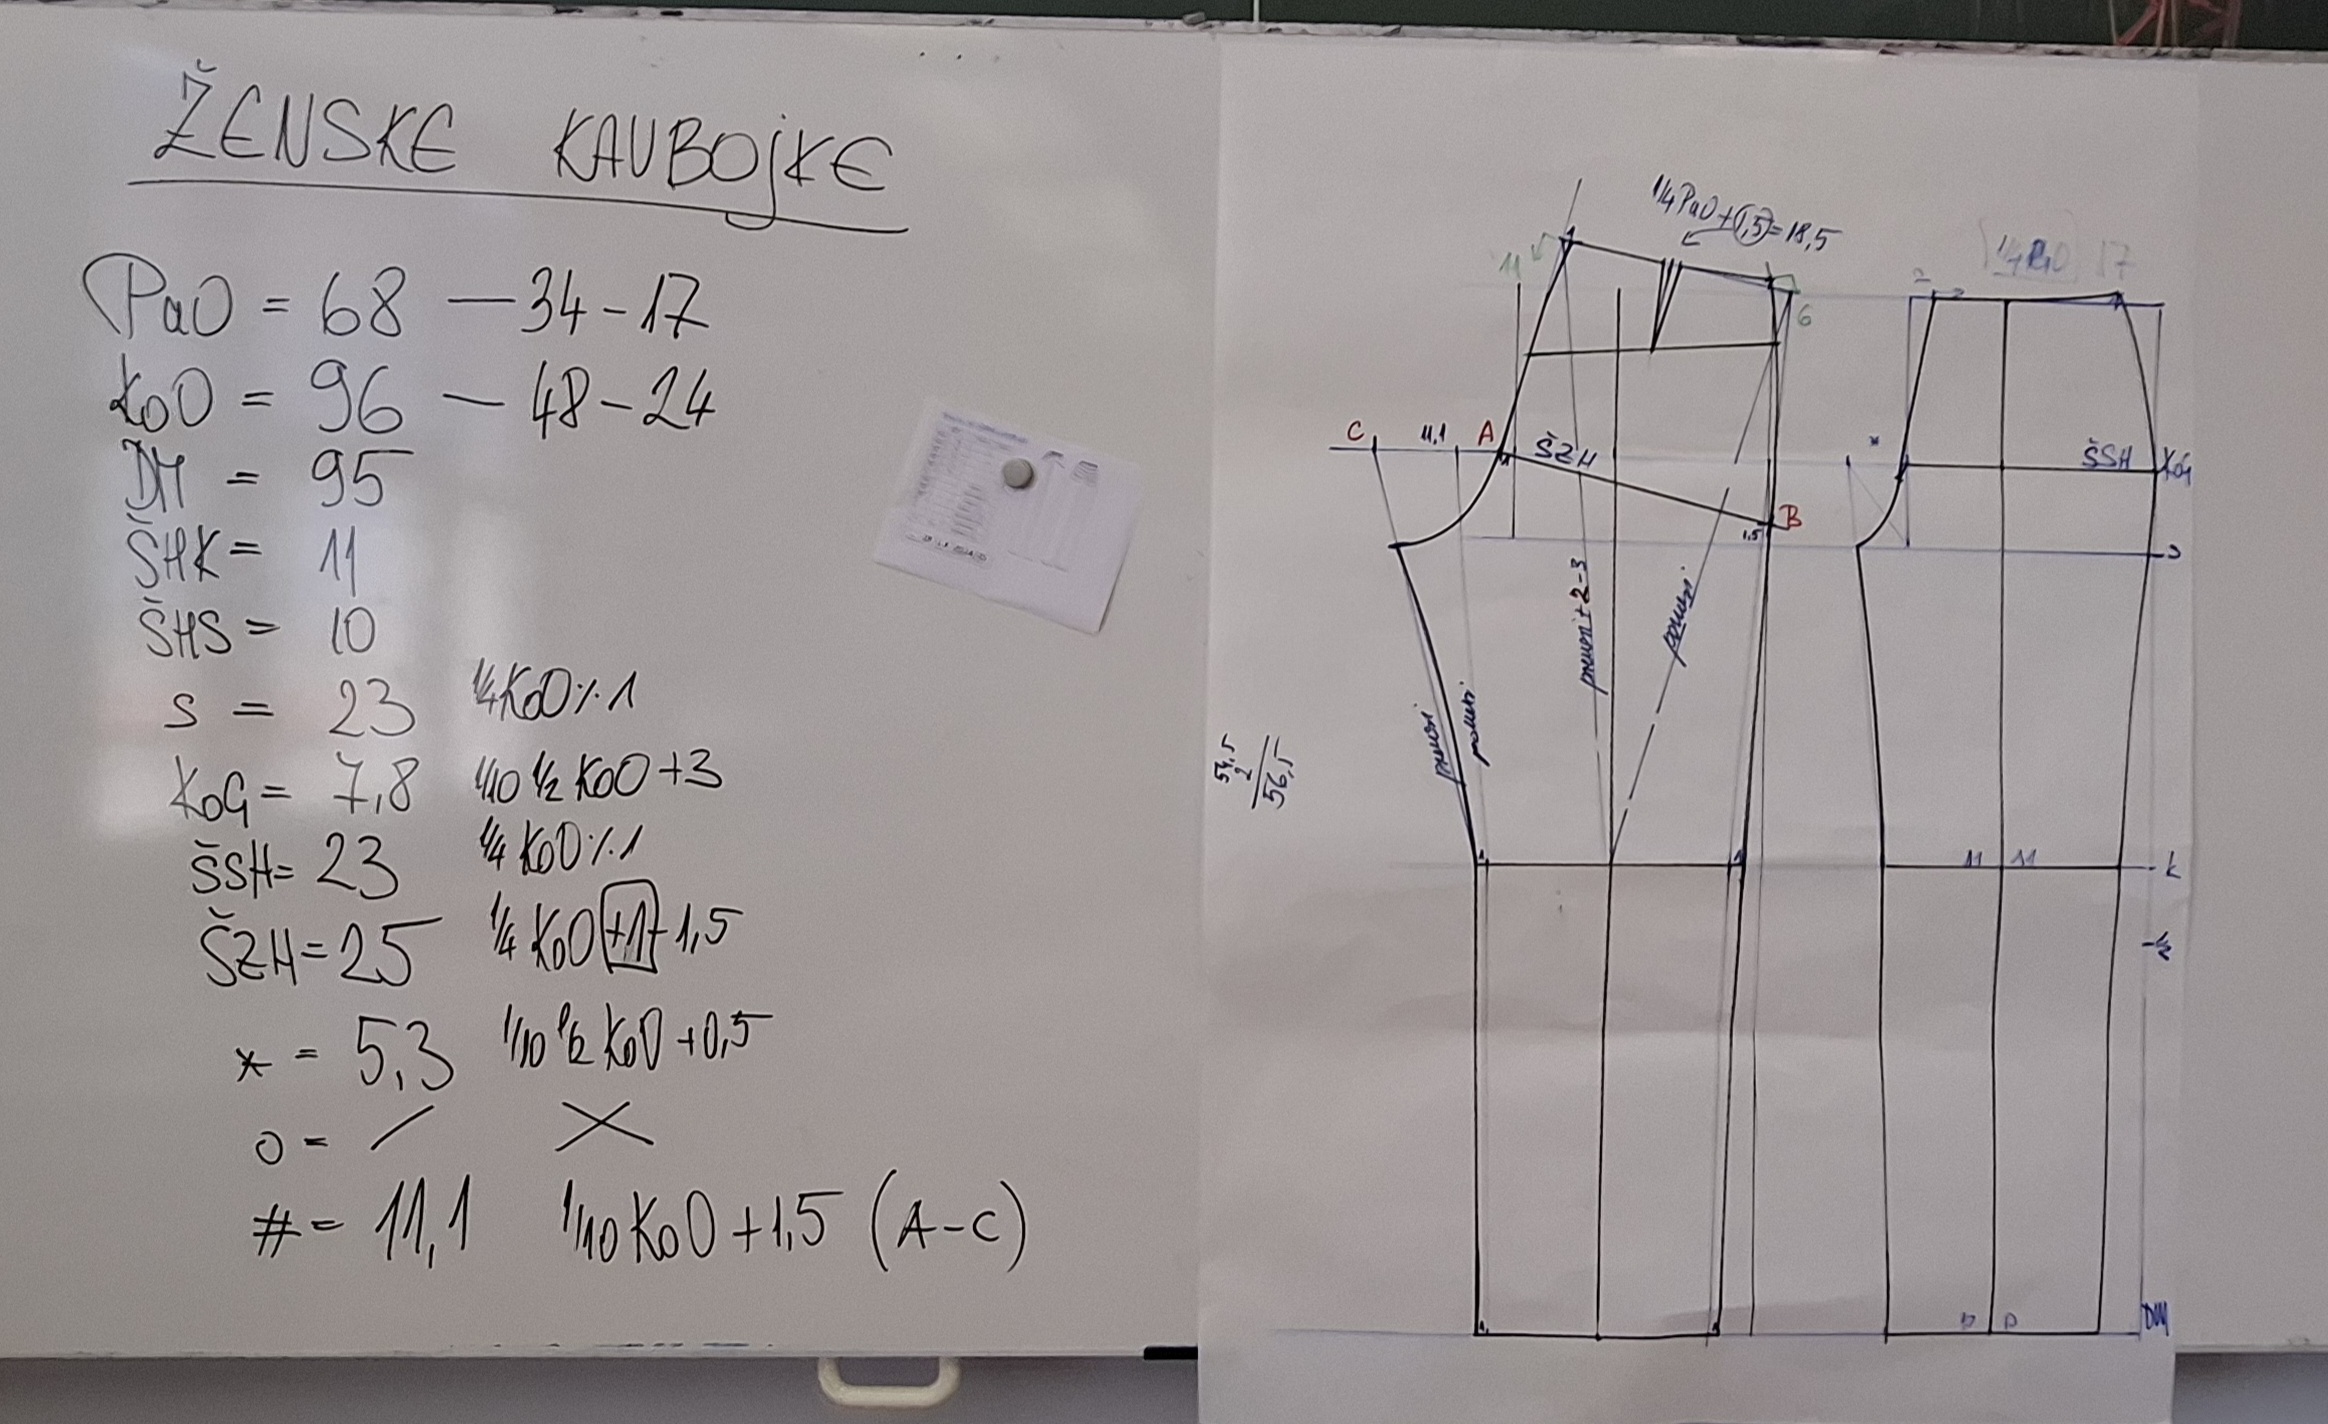 ŽENSKE KAUBOJKE
PaO = 68 — 34 - 17
KoO = 96 — 48 - 24
DH = 95
ŠHK = 11
ŠHS = 10
s = 23 ¼ KoO ⁒ 1
KoG = 7,8 1/10 ½ KoO + 3
ŠSH = 23 ¼ KoO ⁒ 1
ŠZH = 25 ¼ KoO +1 - 1,5
* = 5,3 1/10 ½ KoO + 0,5
o = / X
# = 11,1 1/10 KoO + 1,5 (A - C)
¼ PaO + 1,5 = 18,5
¼ PaO 17
11
6
2
C 11,1 A ŠZH
* ŠSH KoG
B
1,5
s
prenesi + 2-3
prenesi
prenesi
prenesi
54,5
2
56,5
1 1
11 11 k
½
1 1